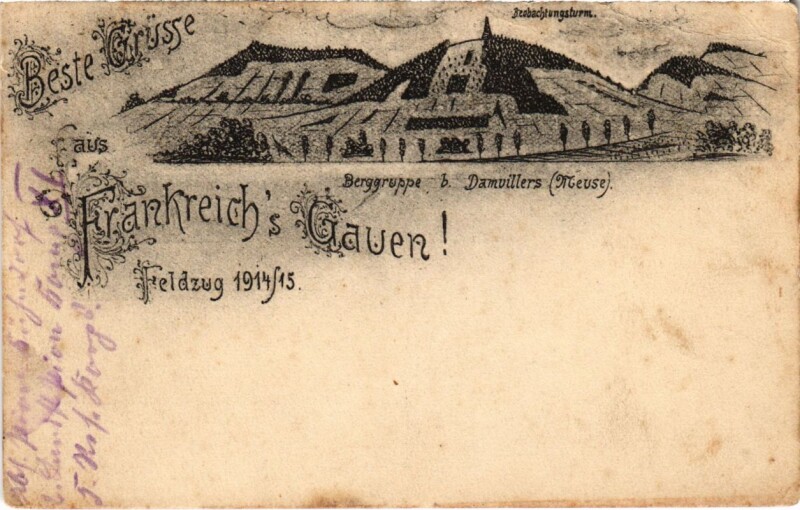 Beste Grüsse
Beobachtungsturm.
aus
Berggruppe b. Damvillers (Meuse).
Frankreich's Gauen!
Feldzug 1914/15.
5. Res. Korps.